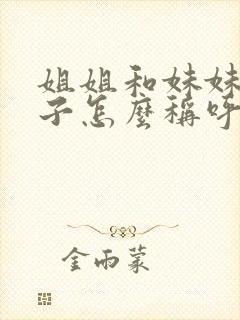 姐姐和妹妹
子怎麼稱呼
金雨蒙